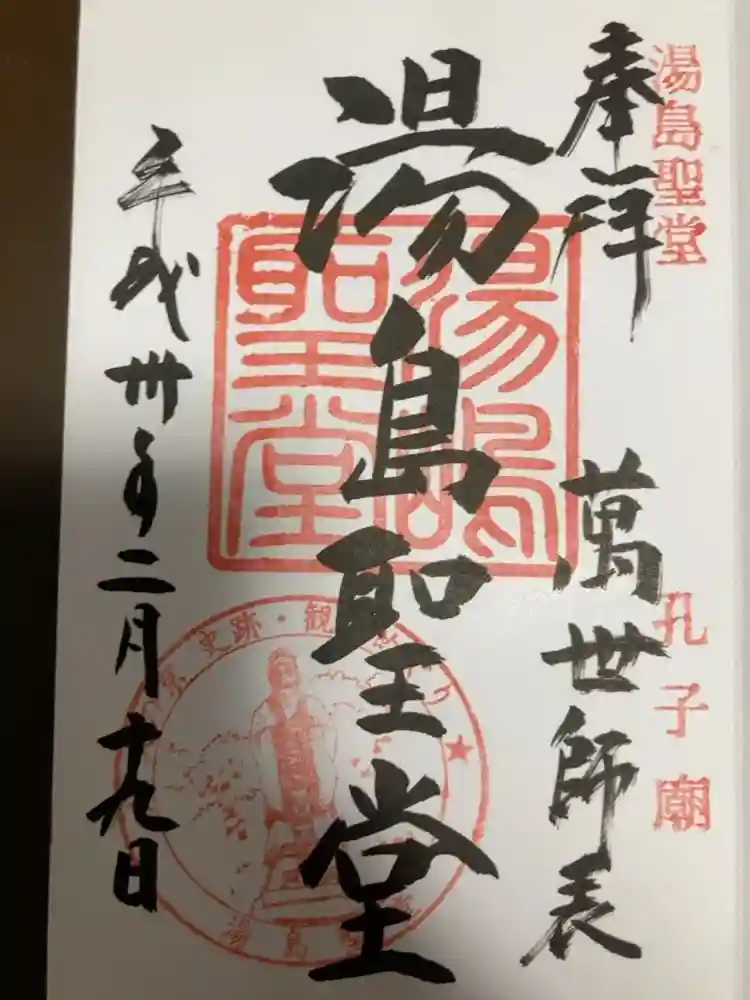 湯島聖堂
孔子廟
奉拝
萬世師表
湯島聖堂
湯島聖堂
史跡・観
湯島聖堂
平成卅年二月十九日